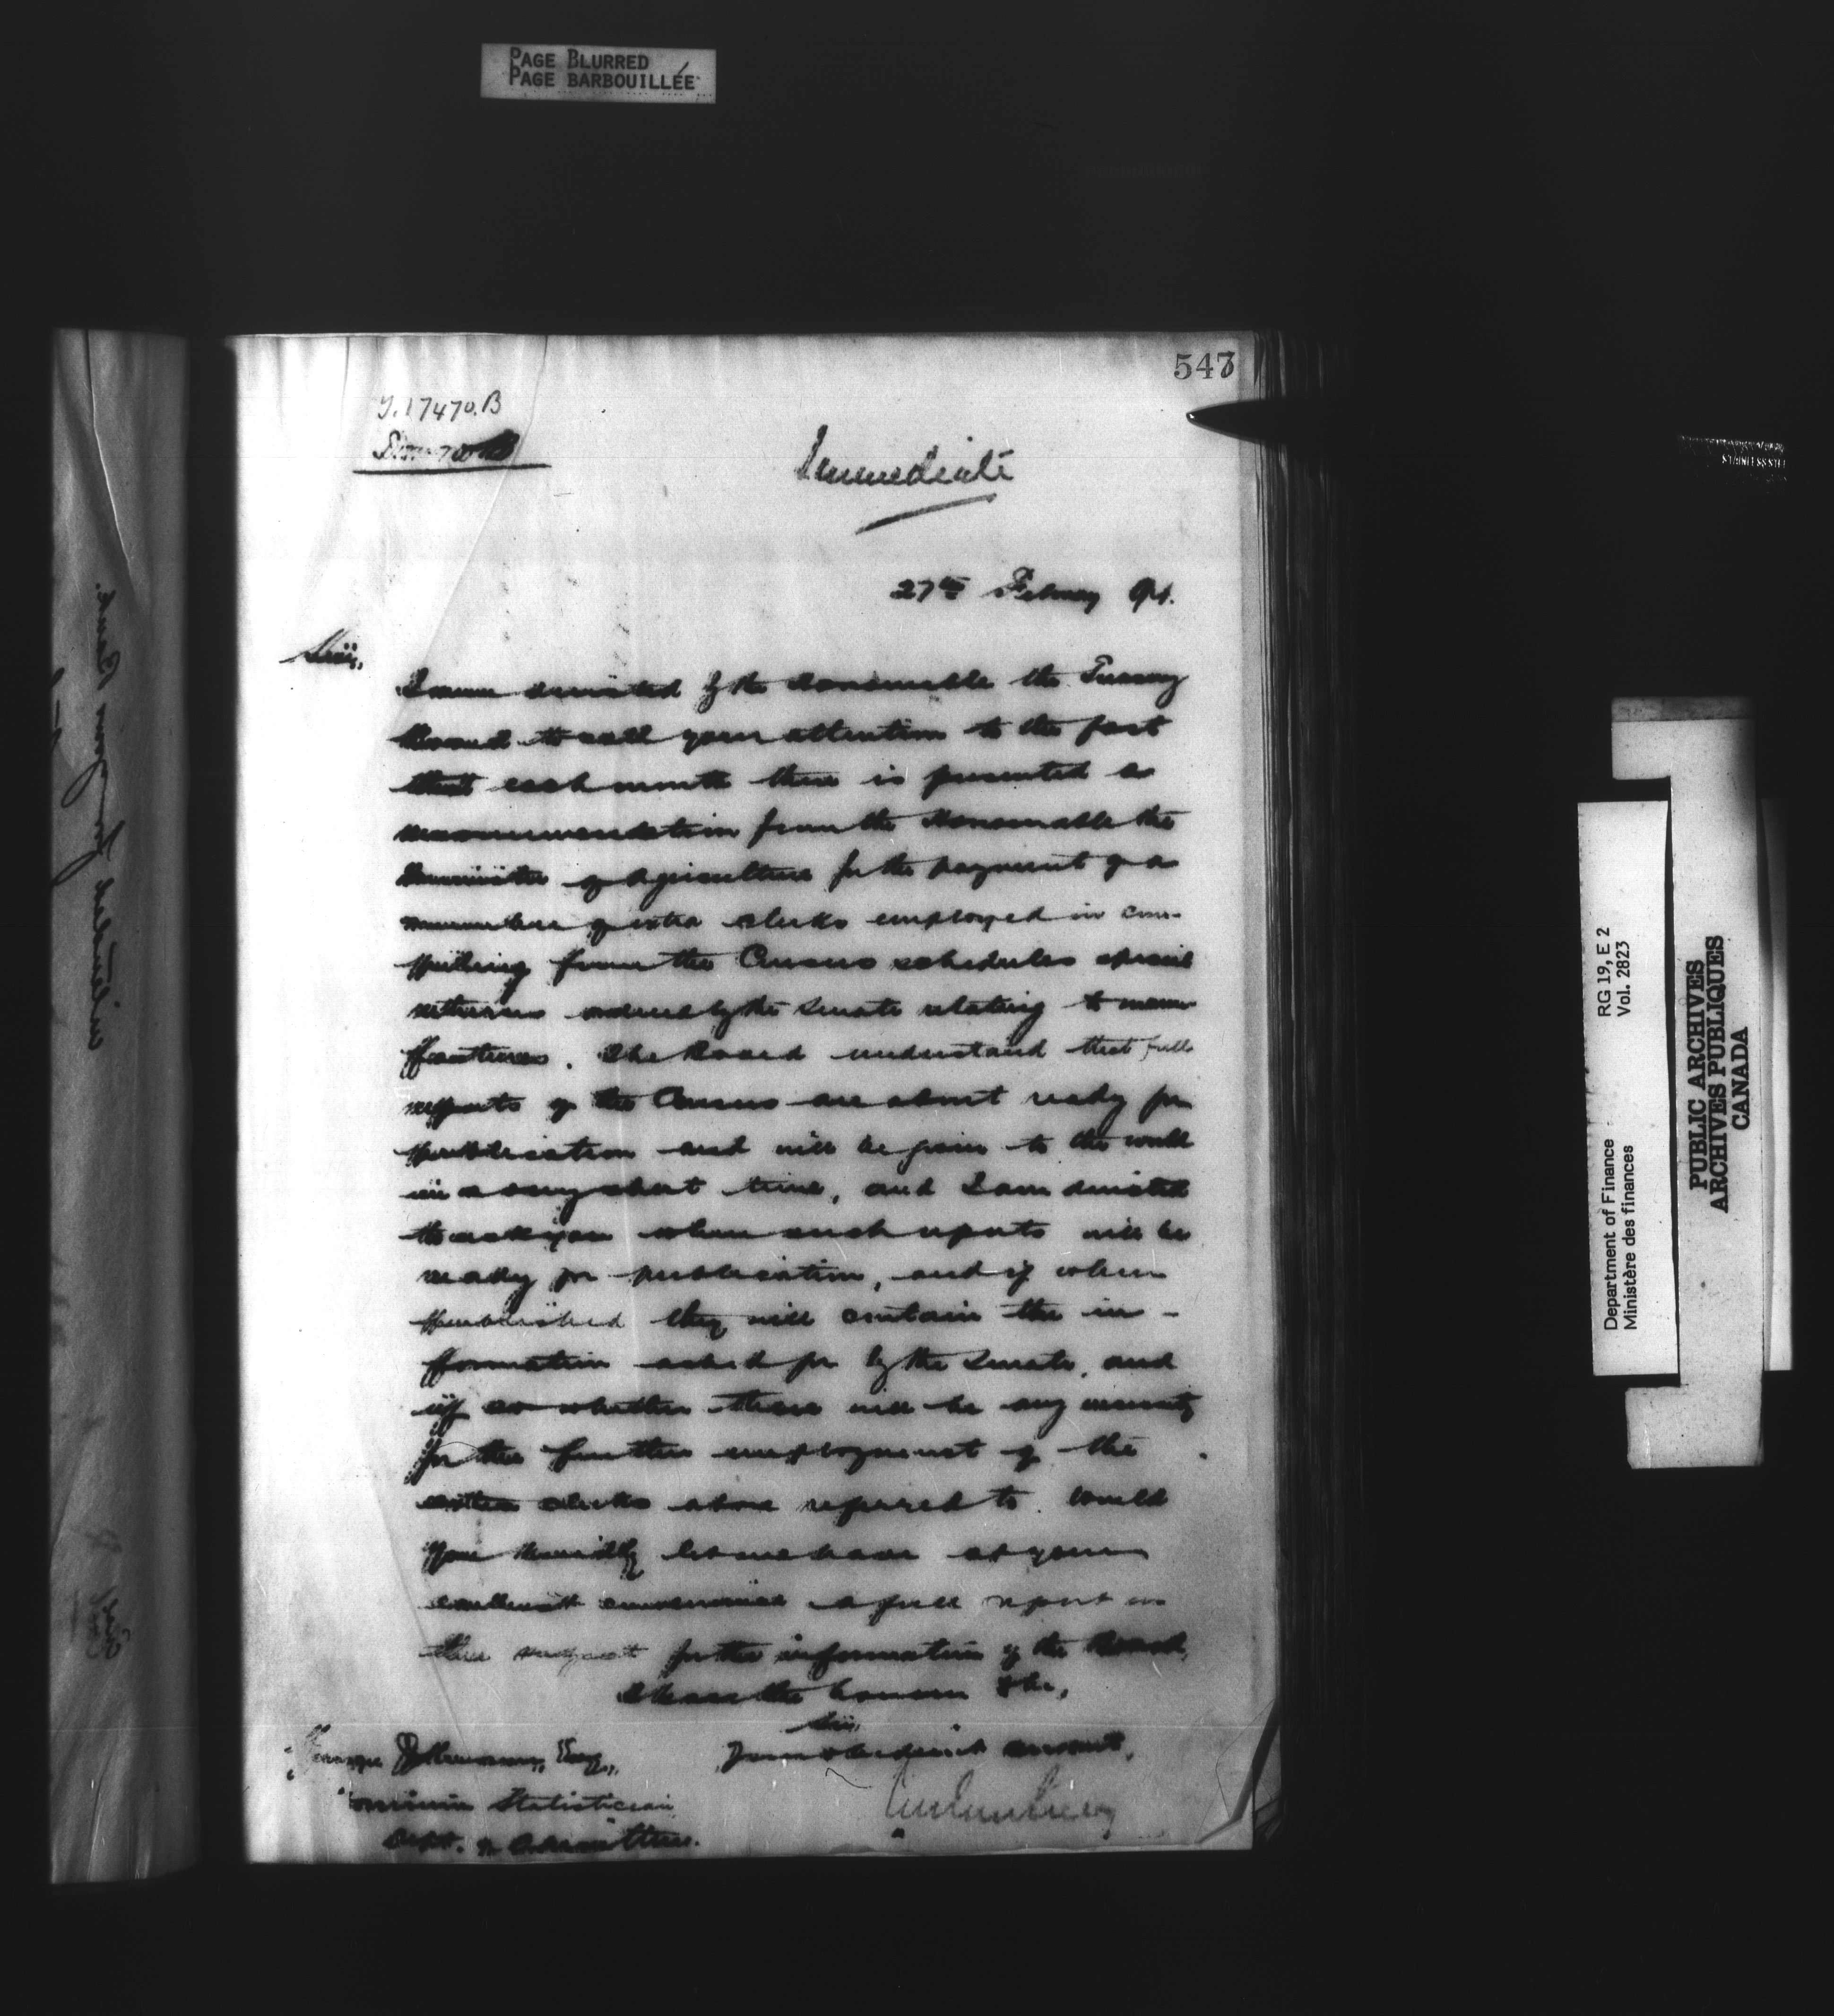 PAGE BLURRED
PAGE BARBOUILLÉE
547
17470.B
Immediate
27th February 94.
Sir,
I am directed by the Honourable the Treasury
Board to call your attention to the fact
that each month there is presented a
recommendation from the Honourable the
Minister of Agriculture for the payment of a
number of extra clerks employed in com-
piling from the Census schedules special
returns ordered by the Senate relating to manu
factures. The Board understand that full
reports of the Census are about ready for
publication and will be given to the world
in a very short time, and I am directed
to ask you when such reports will be
ready for publication, and if when
published they will contain the in-
formation asked for by the Senate, and
if so whether there will be any necessity
for the further employment of the
extra clerks above referred to. Would
you kindly let me have at your
earliest convenience a full report on
this subject for the information of the Board.
I have the honour &c,
Sir,
Your obedient servant,
George Johnson, Esq.,
Dominion Statistician
Dept. of Agriculture.
Department of Finance RG 19, E 2
Ministère des finances Vol. 2823
PUBLIC ARCHIVES
ARCHIVES PUBLIQUES
CANADA